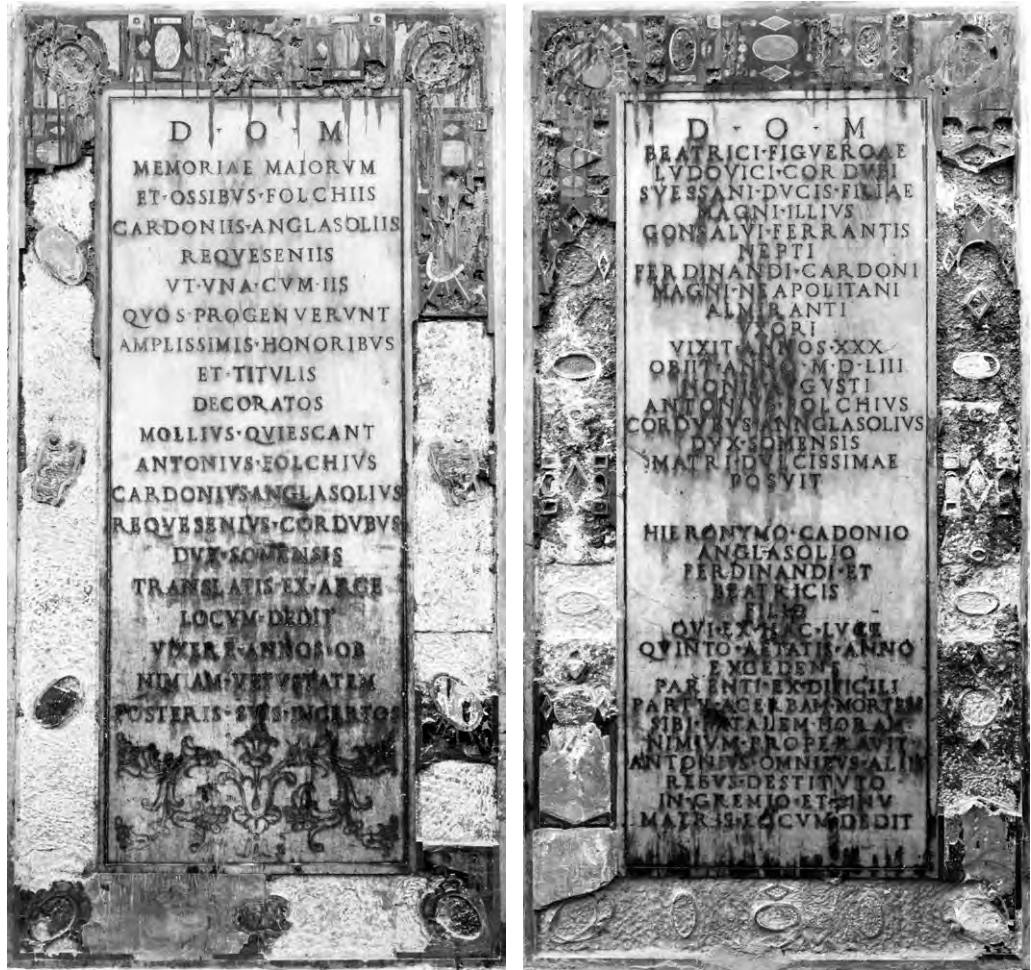 D · O · M
MEMORIAE MAIORVM
ET · OSSIBVS · FOLCHIIS
CARDONIIS · ANGLASOLIIS
REQVESENIIS
VT · VNA · CVM · IIS
QVOS · PROGENVERVNT
AMPLISSIMIS · HONORIBVS
ET · TITVLIS
DECORATOS
MOLLIVS · QVIESCANT
ANTONIVS · FOLCHIVS
CARDONIVS ANGLASOLIVS
REQVESENIVS · CORDVBVS
DVX · SOMENSIS
TRANSLATIS · EX · ARGE
LOCVM · DEDIT
VIXERE · ANNOS · OB
NIMIAM · VETVSTATEM
POSTERIS · SVIS · INCERTOS
D · O · M
BEATRICI · FIGVEROAE
LVDOVICI · CORDVBI
SVESSANI · DVCIS · FILIAE
MAGNI · ILLIVS
GONSALVI · FERRANTIS
NEPTI
FERDINANDI · CARDONI
MAGNI · NEAPOLITANI
ALMIRANTI
VXORI
VIXIT · ANNOS · XXX
OBIIT · ANNO · M · D · LIII
NONIS AVGVSTI
ANTONIVS · FOLCHIVS
CORDVBVS · ANNGLASOLIVS
DVX · SOMENSIS
MATRI · DVLCISSIMAE
POSVIT
HIERONYMO · CADONIO
ANGLASOLIO
FERDINANDI · ET
BEATRICIS
FILIO
QVI · EX · HAC · LVCE
QVINTO · AETATIS · ANNO
EXCEDENS
PARENTI · EX · DIFICILI
PARTV · ACERBAM · MORTEM
SIBI · FATALEM · HORAM
NIMIVM · PROPERAVIT
ANTONIVS · OMNIBVS · ALIIS
REBVS · DESTITVTO
IN · GREMIO · ET · SINV
MATRIS · LOCVM · DEDIT